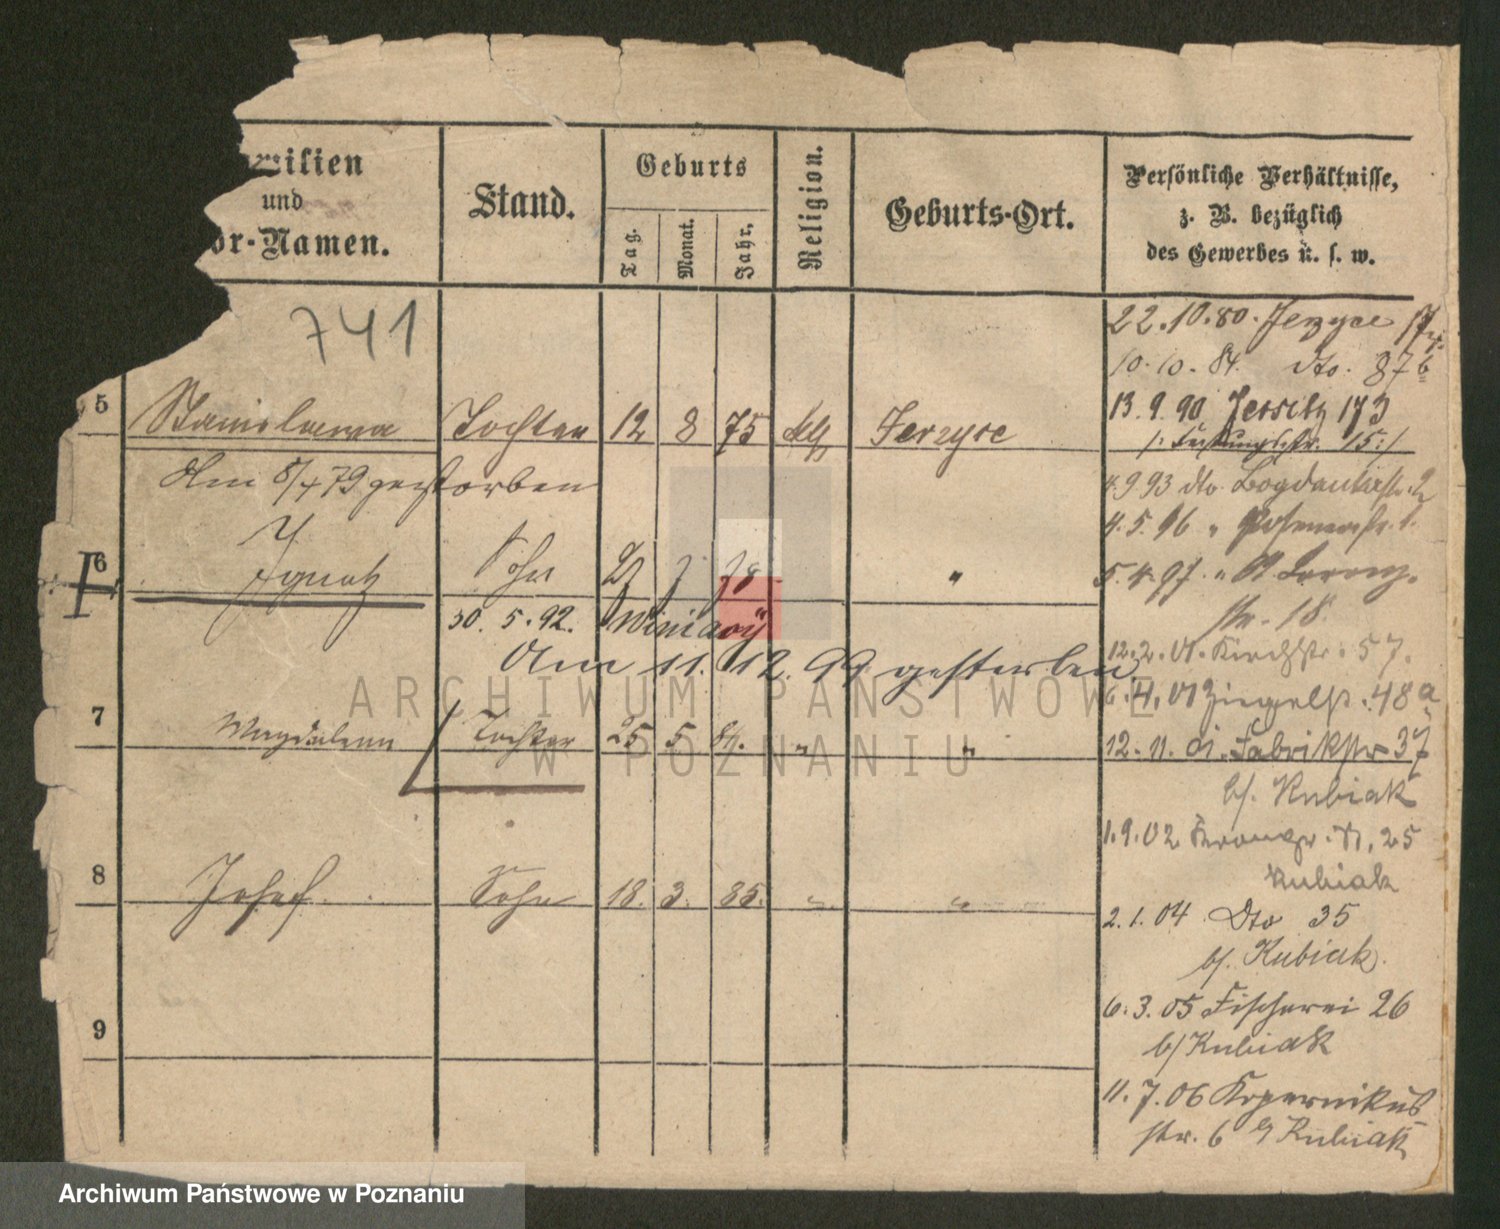 milien
und
or-Namen.
Stand.
Geburts
Tag.
Monat.
Jahr.
Religion.
Geburts-Ort.
Persönliche Verhältnisse,
z. B. bezüglich
des Gewerbes u. s. w.
741
22.10.80. Jerzyce
10.10.84. dto. 87b
13.9.90 Jersitz 173
/: Festungsstr. 15:/
5 Stanislawa Tochter 12 8 75 Jerzyce
Am 8/4 79 gestorben
4.9.93 dto Bogdankastr. 2
4.5.96 " Posenerstr. 1.
6 Ignatz Sohn "
5.4.97. "
str. 18
30. 5. 92. Winiary
Am 11. 12. 99 gestorben
12.2.01. Kirchstr. 57.
6.4.01 Ziegelstr. 48a
7 Magdalena Tochter 25 5. 81. " "
12. 11. 01. Fabrikstr 37
b/. Kubiak
1.9.02 25
Kubiak
8 Josef Sohn 18. 3. 85. " "
2.1.04 Dto 35
b/. Kubiak.
6.3.05 Fischerei 26
b/ Kubiak
9
11.7.06 Kopernikus
str. 6 b/ Kubiak
ARCHIWUM PAŃSTWOWE
W POZNANIU
Archiwum Państwowe w Poznaniu